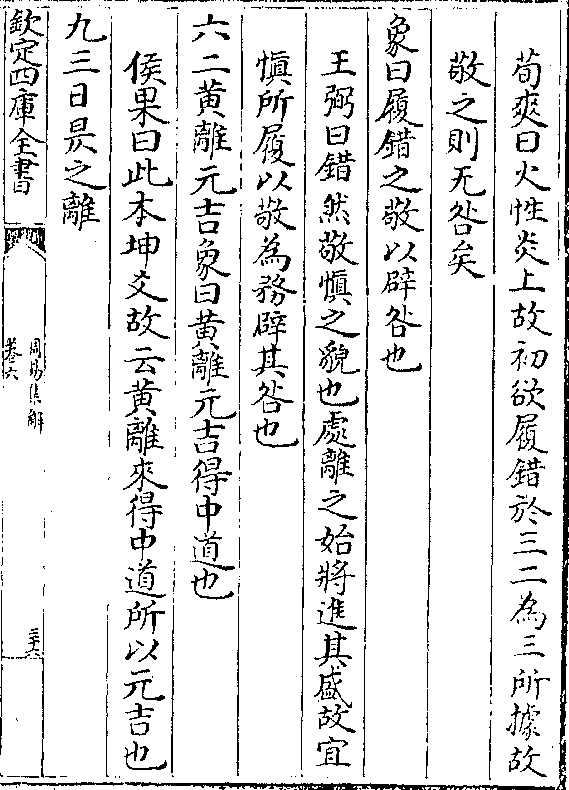 荀爽曰火性炎上故初欲履錯於三二為三所據故
敬之則无咎矣
象曰履錯之敬以辟咎也
王弼曰錯然敬慎之貌也處離之始將進其盛故宜
慎所履以敬為務辟其咎也
六二黃離元吉象曰黃離元吉得中道也
侯果曰此本坤爻故云黃離來得中道所以元吉也
九三日昃之離
欽定四庫全書
周易集解
卷六
三十六